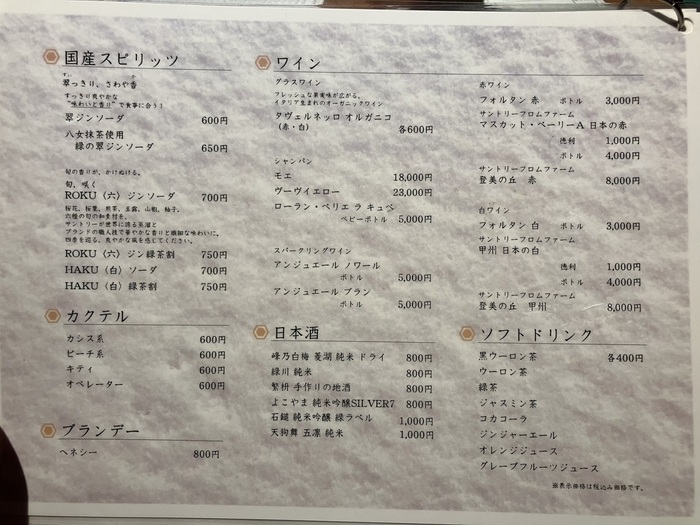 国産スピリッツ
翠っきり、さわや香
すっきり爽やかな
"味わいと香り"で食事に合う！
翠ジンソーダ 600円
八女抹茶使用
緑の翠ジンソーダ 650円
旬の香りが、かけぬける。
旬、咲く
ROKU〈六〉ジンソーダ 700円
桜花、桜葉、煎茶、玉露、山椒、柚子、
六種の旬の和素材を、
サントリーが世界に誇る蒸溜と
ブランドの職人技で華やかな香りと繊細な味わいに。
四季を巡る、爽やかな風を感じてください。
ROKU〈六〉ジン緑茶割 750円
HAKU〈白〉ソーダ 700円
HAKU〈白〉緑茶割 750円
カクテル
カシス系 600円
ピーチ系 600円
キティ 600円
オペレーター 600円
ブランデー
ヘネシー 800円
ワイン
グラスワイン
フレッシュな果実味が広がる、
イタリア生まれのオーガニックワイン
タヴェルネッロ オルガニコ
(赤・白) 各600円
シャンパン
モエ 18,000円
ヴーヴイエロー 23,000円
ローラン・ペリエ ラ キュベ
ベビーボトル 5,000円
スパークリングワイン
アンジュエール ノワール
ボトル 5,000円
アンジュエール ブラン
ボトル 5,000円
赤ワイン
フォルタン 赤 ボトル 3,000円
サントリーフロムファーム
マスカット・ベーリーA 日本の赤
徳利 1,000円
ボトル 4,000円
サントリーフロムファーム
登美の丘 赤 8,000円
白ワイン
フォルタン 白 ボトル 3,000円
サントリーフロムファーム
甲州 日本の白
徳利 1,000円
ボトル 4,000円
サントリーフロムファーム
登美の丘 甲州 8,000円
日本酒
峰乃白梅 菱湖 純米 ドライ 800円
緑川 純米 800円
繁枡 手作りの地酒 800円
よこやま 純米吟醸SILVER7 800円
石鎚 純米吟醸 緑ラベル 1,000円
天狗舞 五凛 純米 1,000円
ソフトドリンク
黒ウーロン茶 各400円
ウーロン茶
緑茶
ジャスミン茶
コカコーラ
ジンジャーエール
オレンジジュース
グレープフルーツジュース
※表示価格は税込み価格です。